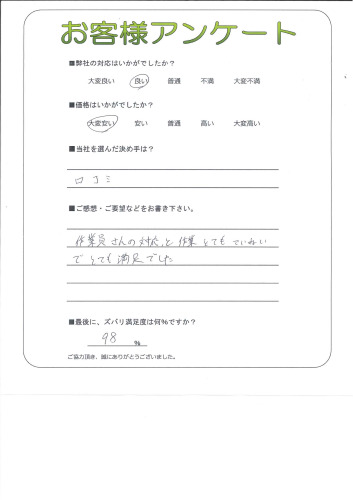 お客様アンケート
■弊社の対応はいかがでしたか？
大変良い 良い 普通 不満 大変不満
■価格はいかがでしたか？
大変安い 安い 普通 高い 大変高い
■当社を選んだ決め手は？
口コミ
■ご感想・ご要望などをお書き下さい。
作業員さんの対応と作業とてもていねい
でとても満足でした
■最後に、ズバリ満足度は何％ですか？
98 ％
ご協力頂き、誠にありがとうございました。